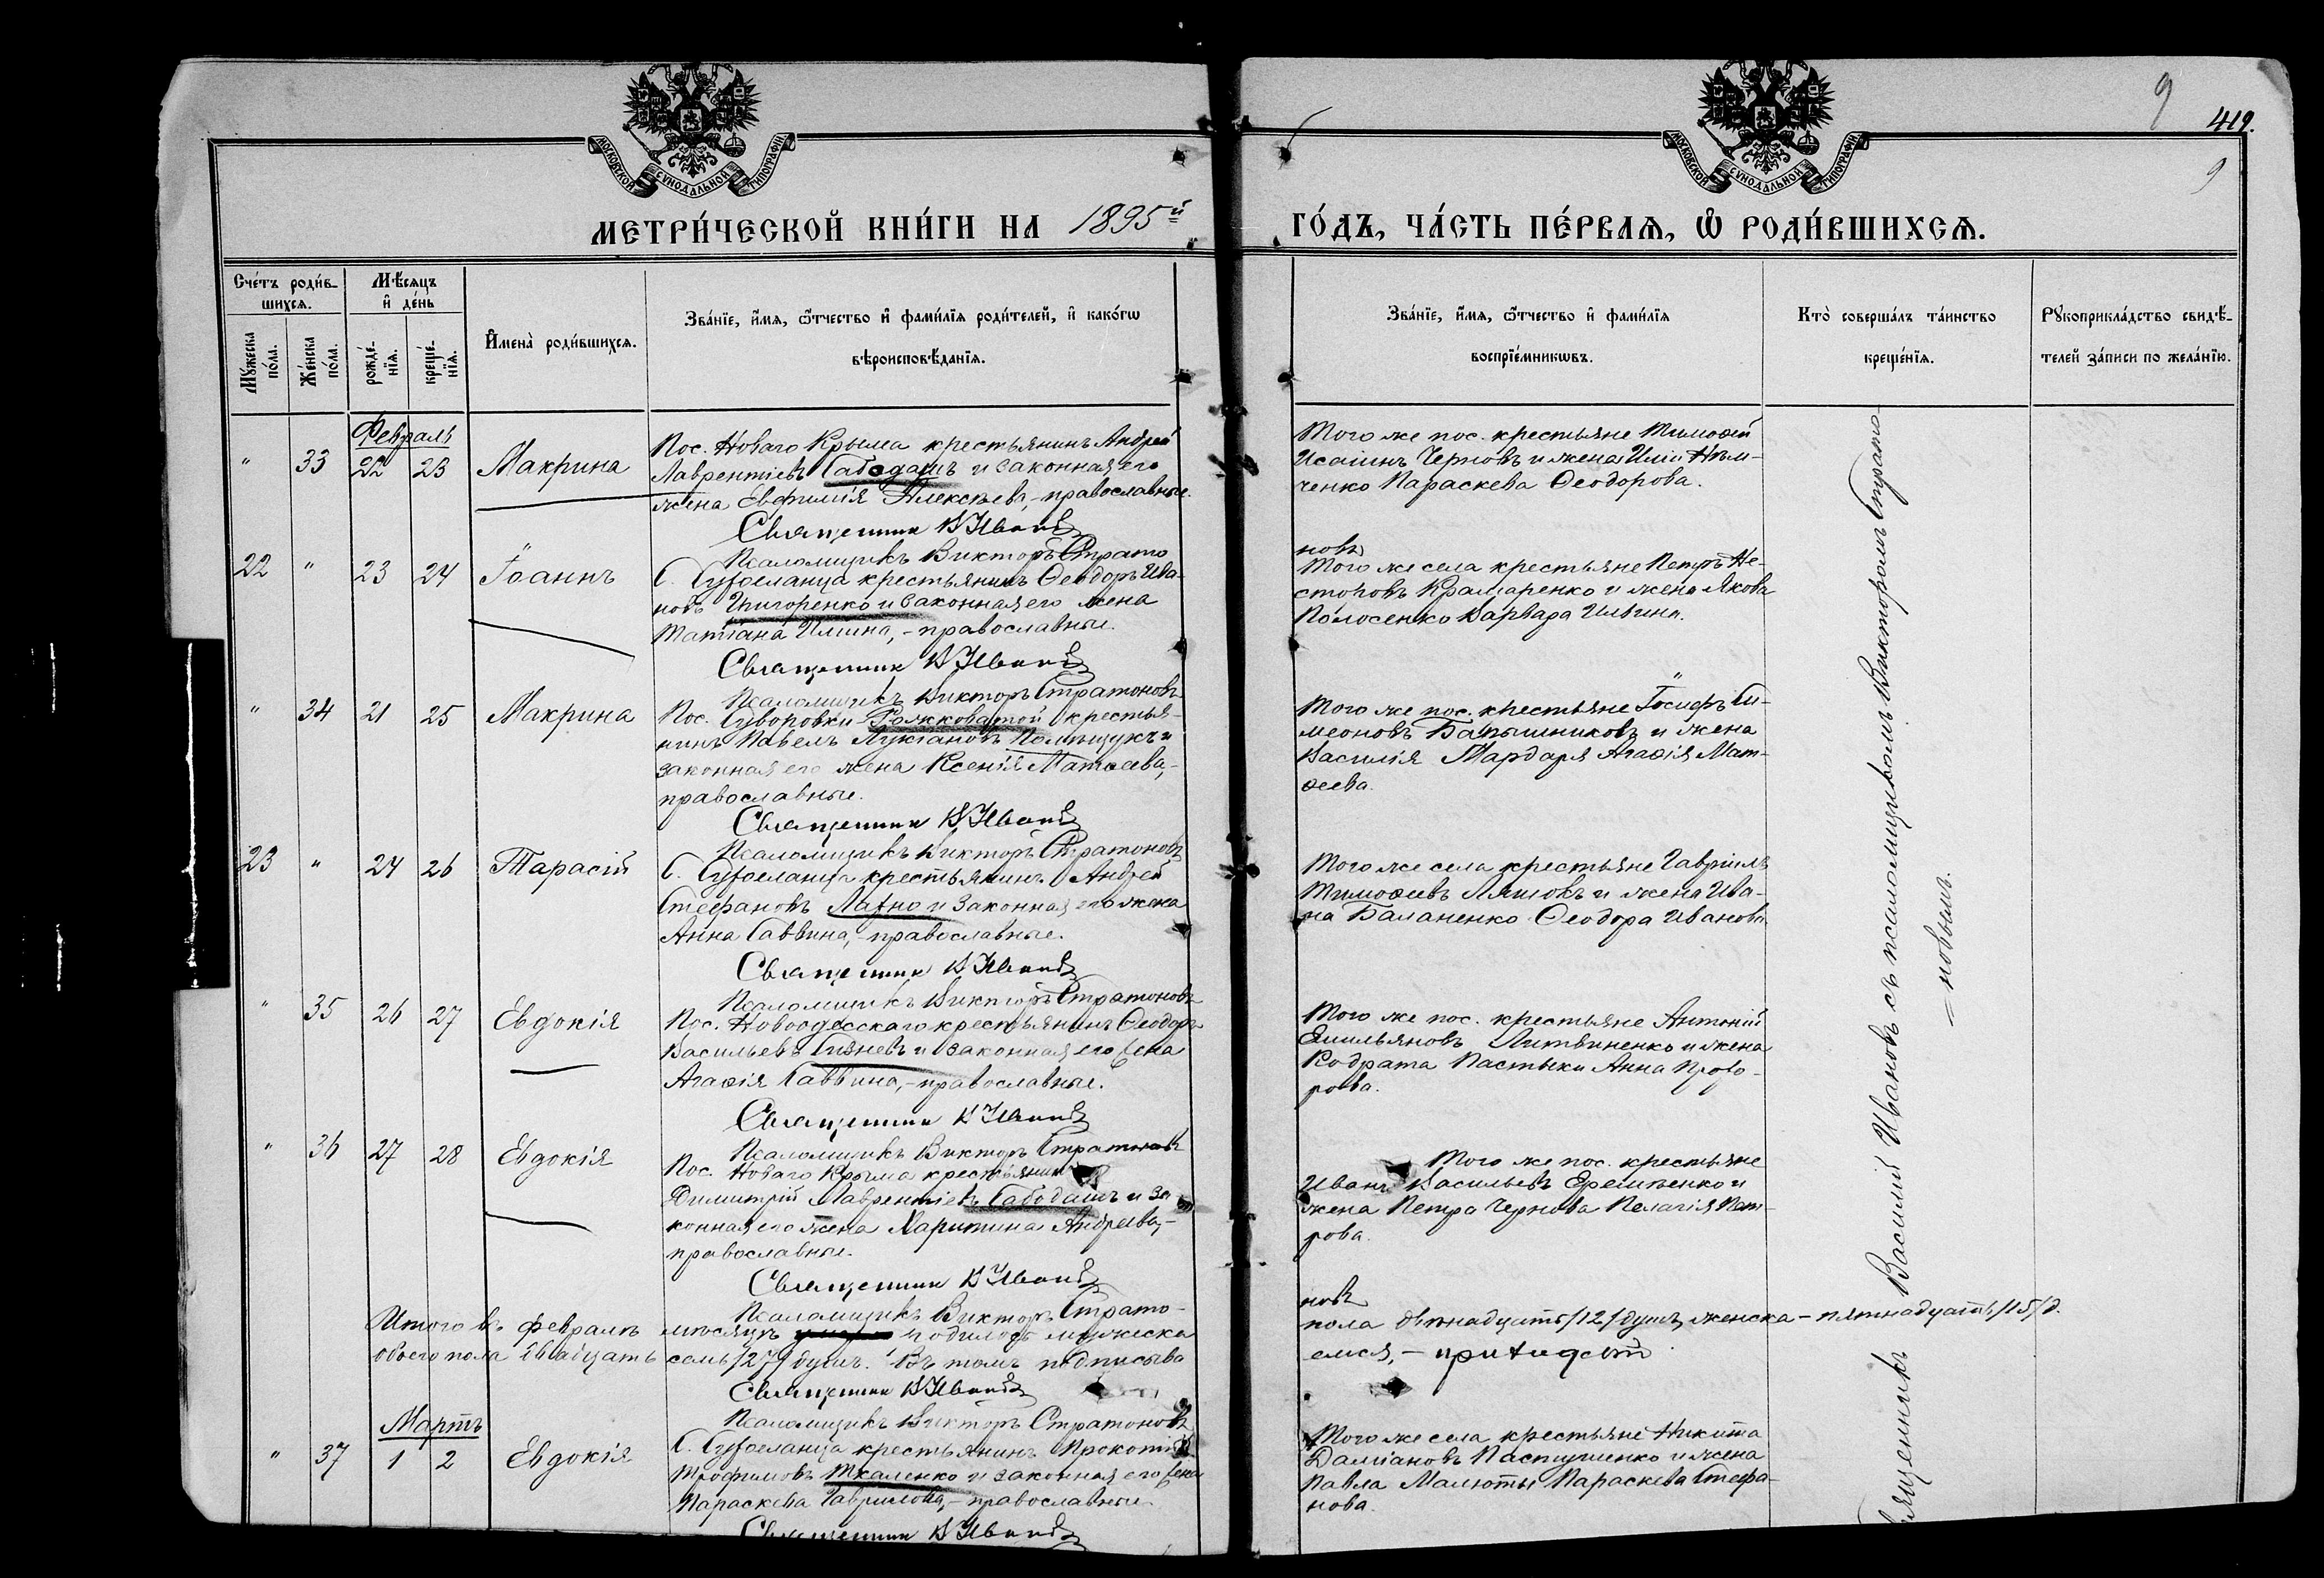 МОСКОВСКОЙ СѴНОДАЛЬНОЙ ТИПОГРАФІИ
МОСКОВСКОЙ СѴНОДАЛЬНОЙ ТИПОГРАФІИ
9
419.
9
МЕТРИ́ЧЕСКОЙ КНИ́ГИ НА 1895й
ГО́ДЪ, ЧА́СТЬ ПЕ́РВАѦ, Ѡ҆ РОДИ́ВШИХСѦ.
Сче́тъ роди́в-
шихсѧ.
Мѣ́сяцъ
и҆ де́нь
Мꙋ́жеска
по́ла.
Же́нска
по́ла.
рожде́-
нїѧ.
креще́-
нїѧ.
И҆мена̀ роди́вшихсѧ.
Зва́нїе, и҆́мѧ, ѻ҆́тчество и҆ фами́лїѧ роди́телей, и҆ како́гѡ
вѣроисповѣ́данїѧ.
Зва́нїе, и҆́мѧ, ѻ҆́тчество и҆ фами́лїѧ
воспрїе́мникѡвъ.
Кто̀ соверша́лъ та́инство
креще́нїѧ.
Рꙋкоприкла́дство свидѣ́-
телей за́писи по жела́нїю.
Февраль
" 33 22 23 Макрина
Пос. Новаго Крыма крестьянинъ Андрей
Лаврентіевъ Сабодашъ и законная его
жена Евфимія Алексѣева,- православные.
Священникъ В Ивановъ
Псаломщикъ Викторъ Страто
Того же пос. крестьяне Тимофей
Исаіинъ Черновъ и жена Иліи Нѣм-
ченко Параскева Ѳеодорова.
новъ
22 " 23 24 Іоаннъ
С. крестьянинъ Ѳеодоръ Ива-
новъ Григоренко и законная его жена
Татіана Иліина,- православные.
Священникъ В Ивановъ
Псаломщикъ Викторъ Стратоновъ
Того же села крестьяне Петръ Не-
сторовъ Крамаренко и жена Якова
Полосенко Варвара Ильина.
" 34 21 25 Макрина
Пос. Суворовки крестья-
нинъ Павелъ Лукіановъ Полищукъ и
законная его жена Ксенія Матѳеева,-
православные.
Священникъ В Ивановъ
Псаломщикъ Викторъ Стратоновъ
Того же пос. крестьяне Іосифъ Си-
меоновъ и жена
Василія Мардаря Агаѳія Мат-
ѳеева.
23 " 24 26 Тарасій
С. крестьянинъ Андрей
Стефановъ Лахно и законная его жена
Анна Саввина,- православные.
Священникъ В Ивановъ
Псаломщикъ Викторъ Стратоновъ
Того же села крестьяне Гавріилъ
Тимоѳеевъ Ляшокъ и жена Ива-
на Баланенко Ѳеодора Иванова.
" 35 26 27 Евдокія
Пос. Новоодесскаго крестьянинъ Ѳеодоръ
Васильевъ и законная его жена
Агаѳія Саввина,- православные.
Священникъ В Ивановъ
Псаломщикъ Викторъ Стратоновъ
Того же пос. крестьяне Антоній
Емильяновъ Литвиненко и жена
Кодрата Пастыки Анна Прохо-
рова.
" 36 27 28 Евдокія
Пос. Новаго Крыма крестьянинъ
Димитрій Лаврентіевъ Сабодашъ и за-
конная его жена Харитина Андреева,-
православные.
Священникъ В Ивановъ
Псаломщикъ Викторъ Страто-
Того же пос. крестьяне
Иванъ Васильевъ Еремѣенко и
жена Петра Чернова Пелагія Пет-
рова.
новъ
Итого въ февралѣ мѣсяцѣ родилось мужеска
пола двѣнадцать /12/ душъ, женска - пятнадцать /15/ д.
обоего пола двадцать семь /27/ душъ. Въ томъ подписыва
емся,- причидетъ
Священникъ В Ивановъ
Псаломщикъ Викторъ Стратоновъ
Мартъ
" 37 1 2 Евдокія
С. крестьянинъ Прокопій
Трофимовъ Ткаленко и законная его жена
Параскева Гаврилова,- православные.
Священникъ В Ивановъ
Того же села крестьяне Никита
Даміановъ Пастушенко и жена
Павла Малюты Параскева Стефа-
нова.
Священникъ Василій Ивановъ съ псаломщикомъ Викторомъ Страто
-новымъ.